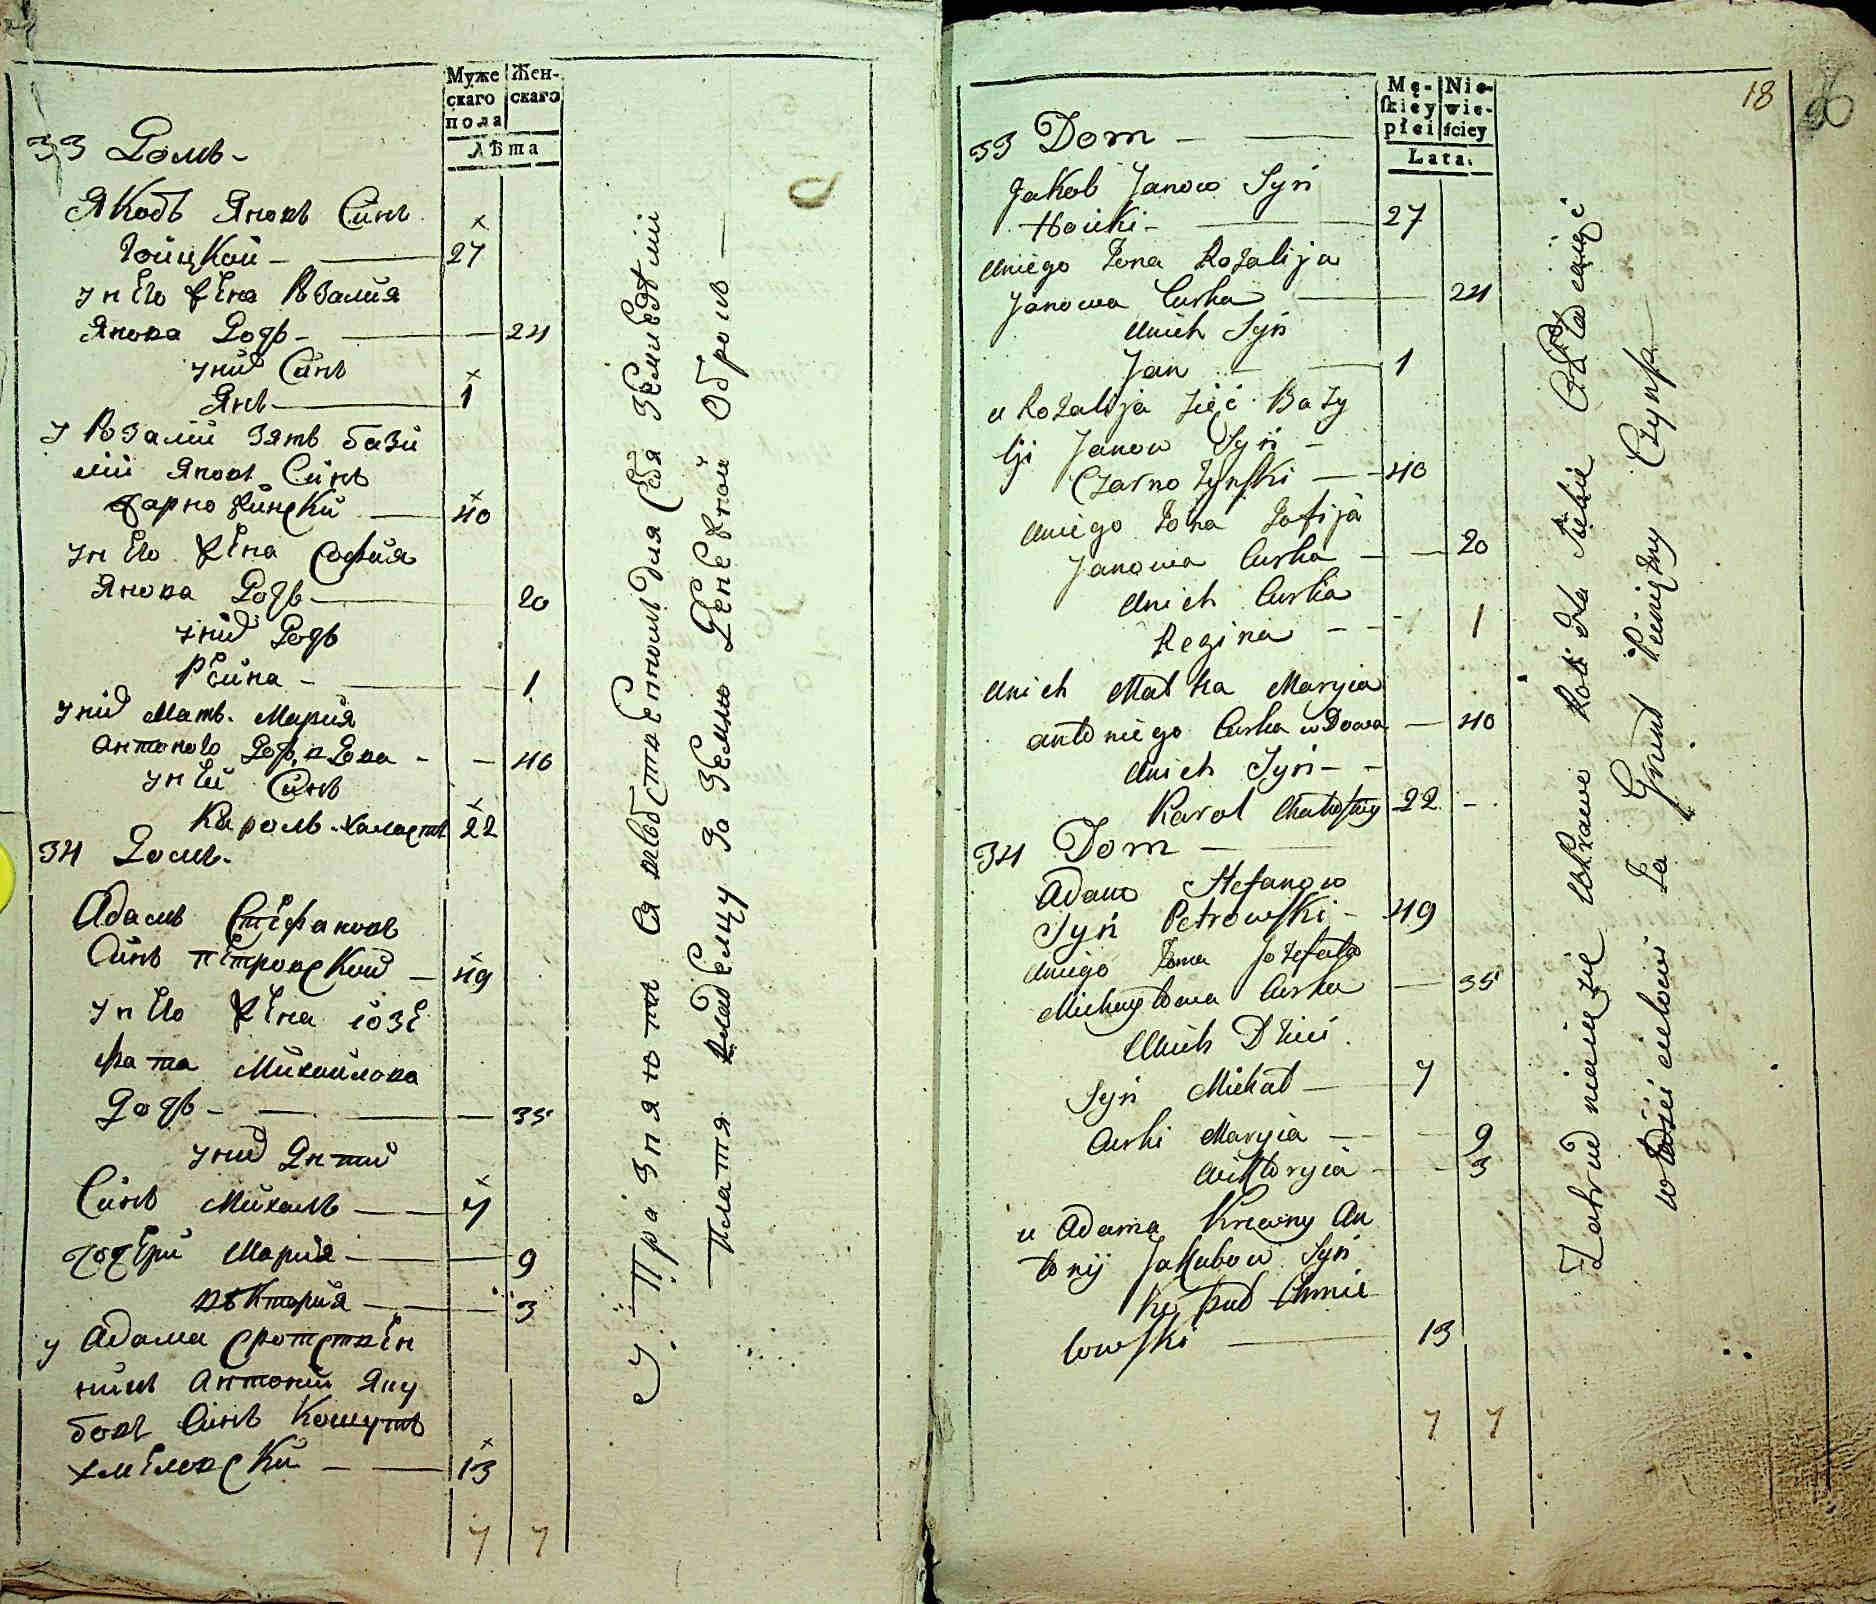 Муже
скаго
пола
Жен-
скаго
Лѣта
33 Домъ -
Якобъ Яновъ Синъ
27
у него жена Розалия
Янова Дочь - 24
у них Синъ
Янъ 1
у Розалии зять Бази
лий Яновъ Синъ
Чарножинский 40
у него жена София
Янова Дочь 20
у них Дочь
Регина - 1
у них Мать Мария
Антонова Дочь вдова - 40
у ней Синъ
Кароль 22
34 Домъ -
Адамъ Стефановъ
Синъ Петровский - 49
у него жена Іозе
фата Михайлова
Дочь - 35
у них Дети
Синъ Михалъ 7
дочери Мария 9
Виктория 3
у Адама сродствен
никъ Антоний Яку
бовъ Синъ Кошутъ
Хмелевский 13
7 7
Упражняются собственномъ для себя земледелии
Платя владельцу за землю Денежной Оброкъ
18
Mę-
ſkiey
płei
Nie-
wie-
ściey
Lata.
33 Dom -
Jakob Janow Syn
27
u niego Żona Rozalija
Janowa Curka 24
u nich Syn
Jan 1
u Rozalija zięć Bazy
lji Janow Syn -
Czarnożynſki 40
u niego Żona Zofija
Janowa Curka 20
u nich Curka
Regina 1
u nich Matka Maryia
Antoniego Curka wDowa 40
u nich Syn - -
Karol 22 -
34 Dom
Adam Stefanow
Syn Petrowſki - 49
u niego Żona Jozefata
Michayłowa Curka 35
u nich Dzieci
Syn Michał 7
Curki Maryia 9
Wiktoryia 3
u Adama Krewny An
tonij Jakubow Syn
Koszut Chmie
lowſki 13
7 7
Zatrudnieniu się uprawie Roli dla siebie Opłacaiąc
właścicielowi za Grunt Pieniężny Czynsz